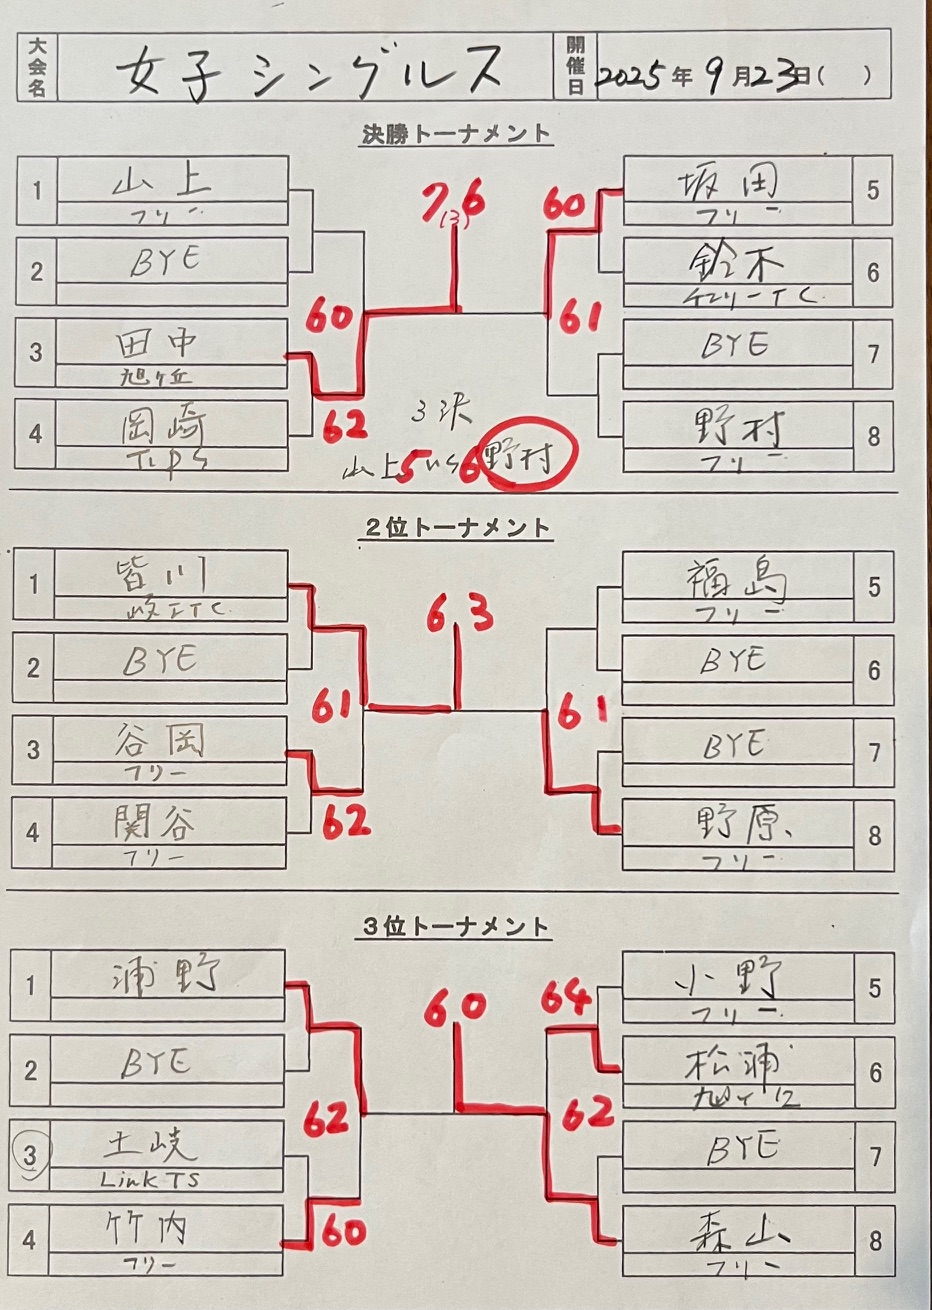 大会名 女子シングルス 開催日 2025年9月23日( )
決勝トーナメント
1 山上
フリー
2 BYE
3 田中
旭ヶ丘
4 岡崎
7(3)6
60
60
62
61
坂田 5
フリー
鈴木 6
チェリーTC
BYE 7
野村 8
フリー
3決
山上 5 vs 6 野村
2位トーナメント
1 皆川
2 BYE
3 谷岡
フリー
4 関谷
フリー
63
61
62
61
福島 5
フリー
BYE 6
BYE 7
野原 8
フリー
3位トーナメント
1 浦野
2 BYE
3 土岐
Link TS
4 竹内
フリー
60
62
60
64
62
小野 5
フリー
松浦 6
BYE 7
森山 8
フリー